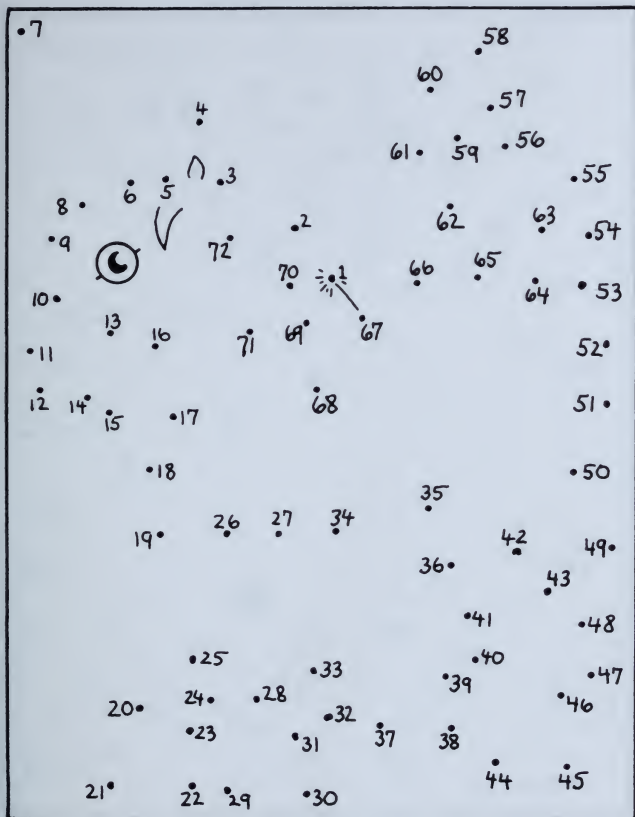 7
58
60
4
57
61 59 56
6 5 3
55
8
62 63
2
9 72 54
70 1 66 65
64 53
10
13
16 71 69 67
52
11
12 14
15 17 68 51
18 50
35
19 26 27 34
42 49
36
43
41 48
25
33 40
39 47
24 28 46
20
23 32
31 37 38
44 45
21 22 29 30